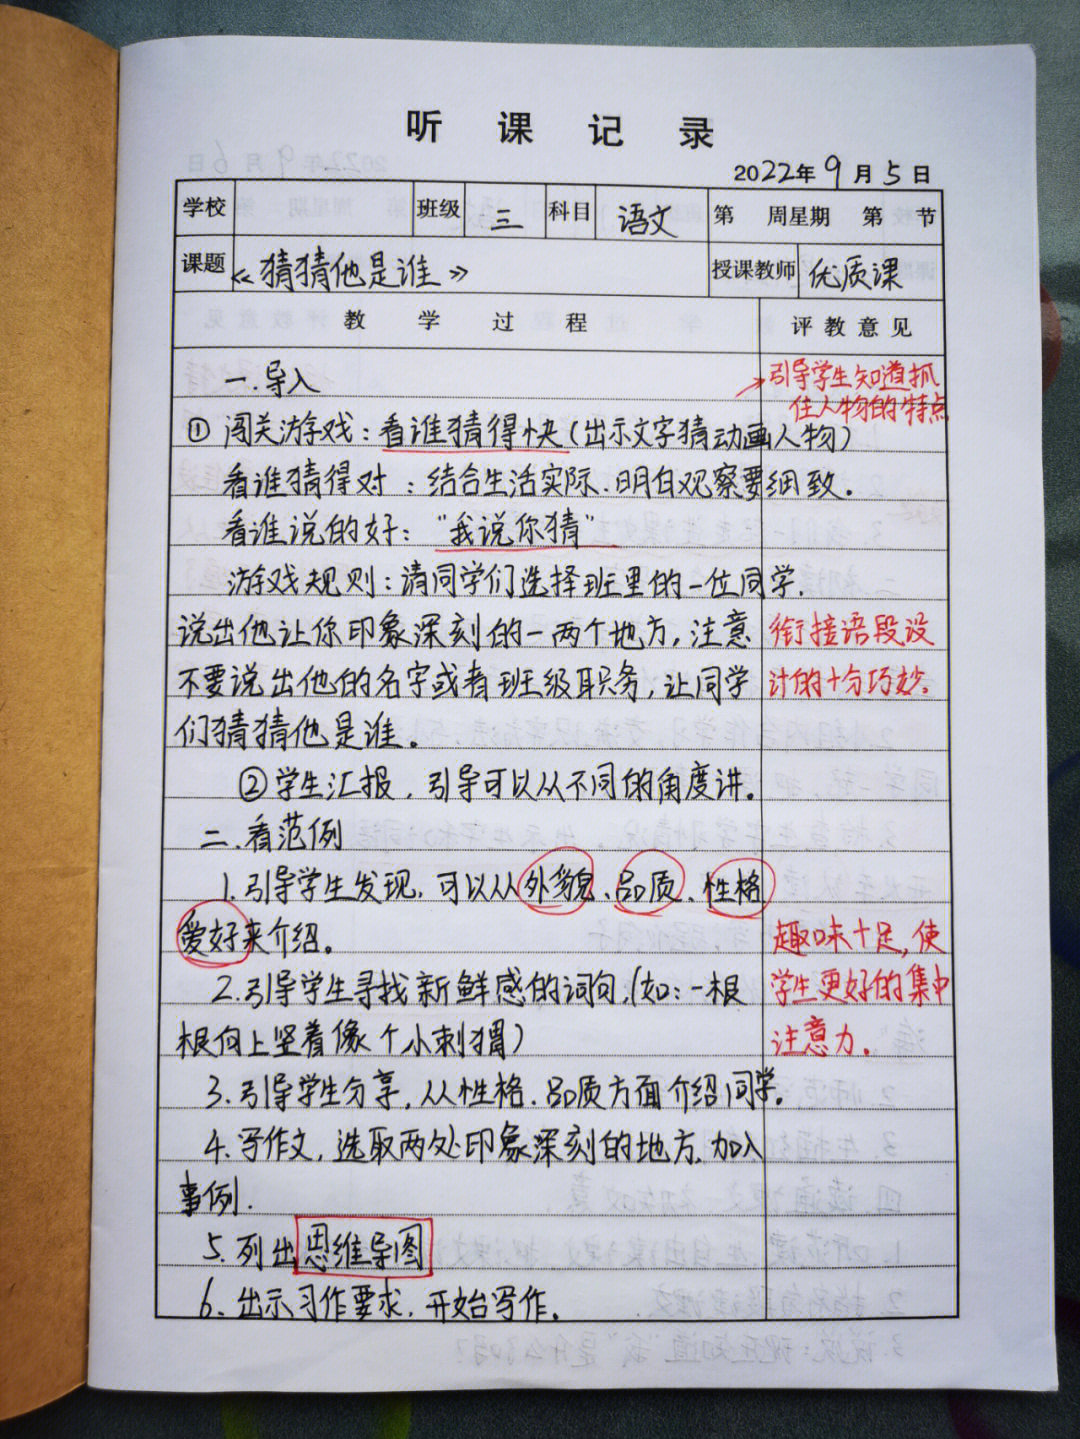 听课记录
2022年9月5日
学校 班级 三 科目 语文 第 周星期 第 节
课题 《猜猜他是谁》 授课教师 优质课
教学过程 评教意见
一.导入
→引导学生知道抓
住人物的特点
① 闯关游戏：看谁猜得快（出示文字猜动画人物）
看谁猜得对：结合生活实际、明白观察要细致。
看谁说的好：“我说你猜”
游戏规则：请同学们选择班里的一位同学.
说出他让你印象深刻的一两个地方，注意
衔接语段设
不要说出他的名字或者班级职务，让同学
计的十分巧妙。
们猜猜他是谁。
②学生汇报，引导可以从不同的角度讲。
二.看范例
1.引导学生发现，可以从外貌、品质、性格
爱好来介绍。
趣味十足，使
2.引导学生寻找新鲜感的词句，（如：一根
学生更好的集中
根向上竖着像个小刺猬）
注意力。
3.引导学生分享，从性格、品质方面介绍同学。
4.写作文，选取两处印象深刻的地方，加入
事例.
5.列出思维导图
6.出示习作要求，开始写作。